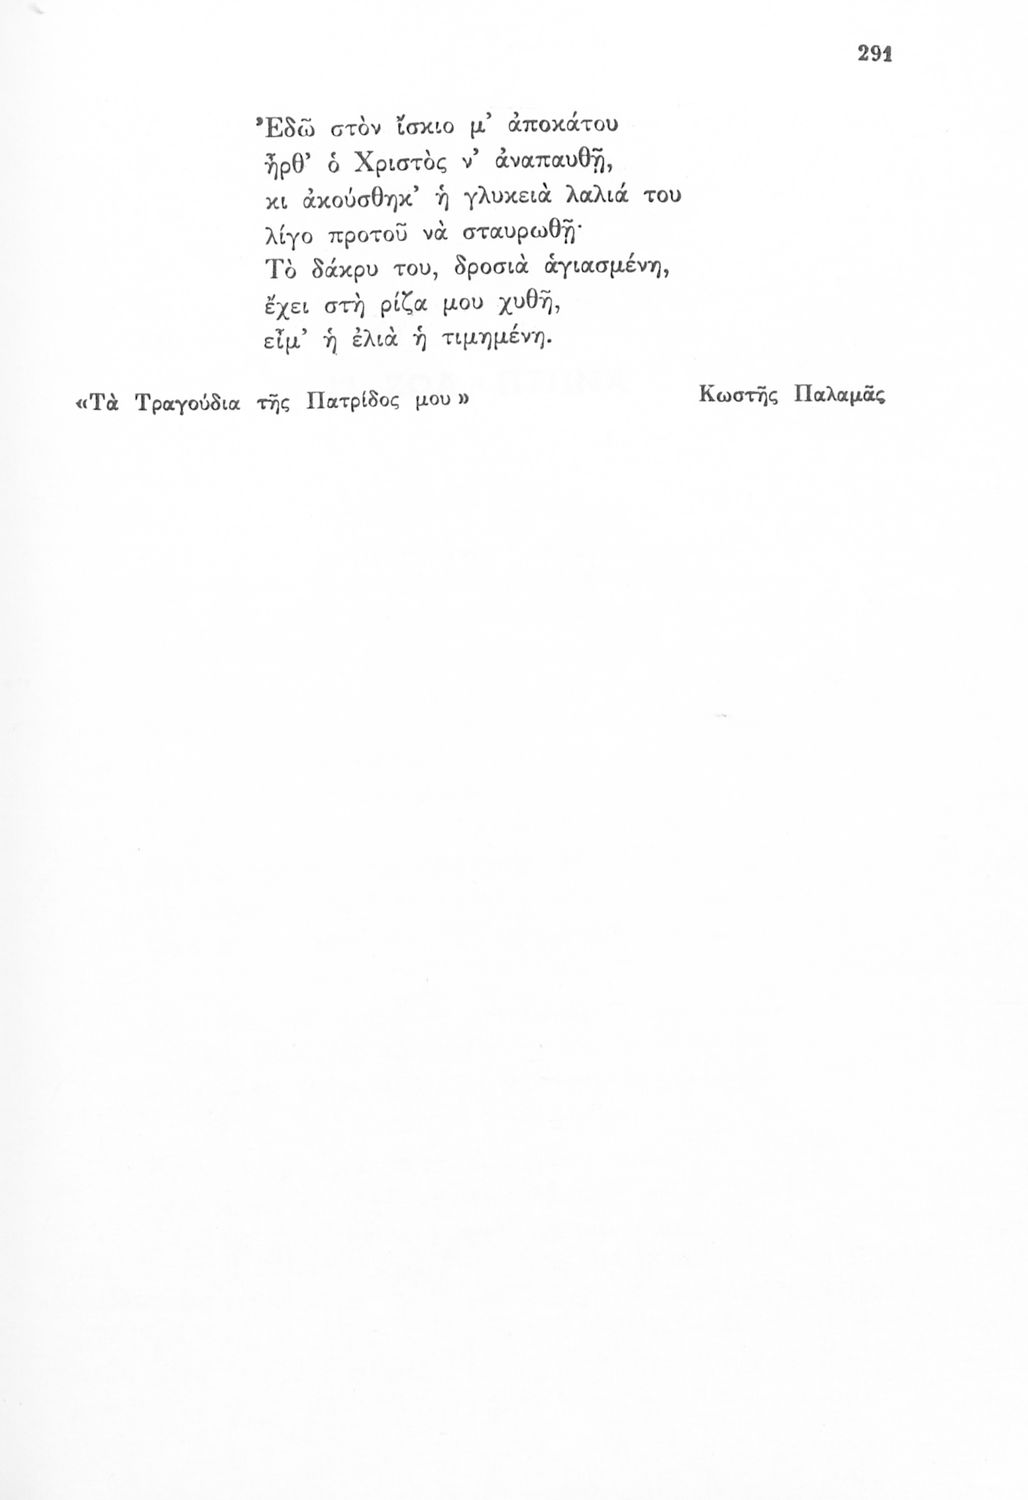 291
Ἐδῶ στὸν ἴσκιο μ’ ἀποκάτου
ἦρθ’ ὁ Χριστὸς ν’ ἀναπαυθῇ,
κι ἀκούσθηκ’ ἡ γλυκειὰ λαλιά του
λίγο προτοῦ νὰ σταυρωθῇ·
Τὸ δάκρυ του, δροσιὰ ἁγιασμένη,
ἔχει στὴ ρίζα μου χυθῆ,
εἶμ’ ἡ ἐλιὰ ἡ τιμημένη.
«Τὰ Τραγούδια τῆς Πατρίδος μου» Κωστῆς Παλαμᾶς